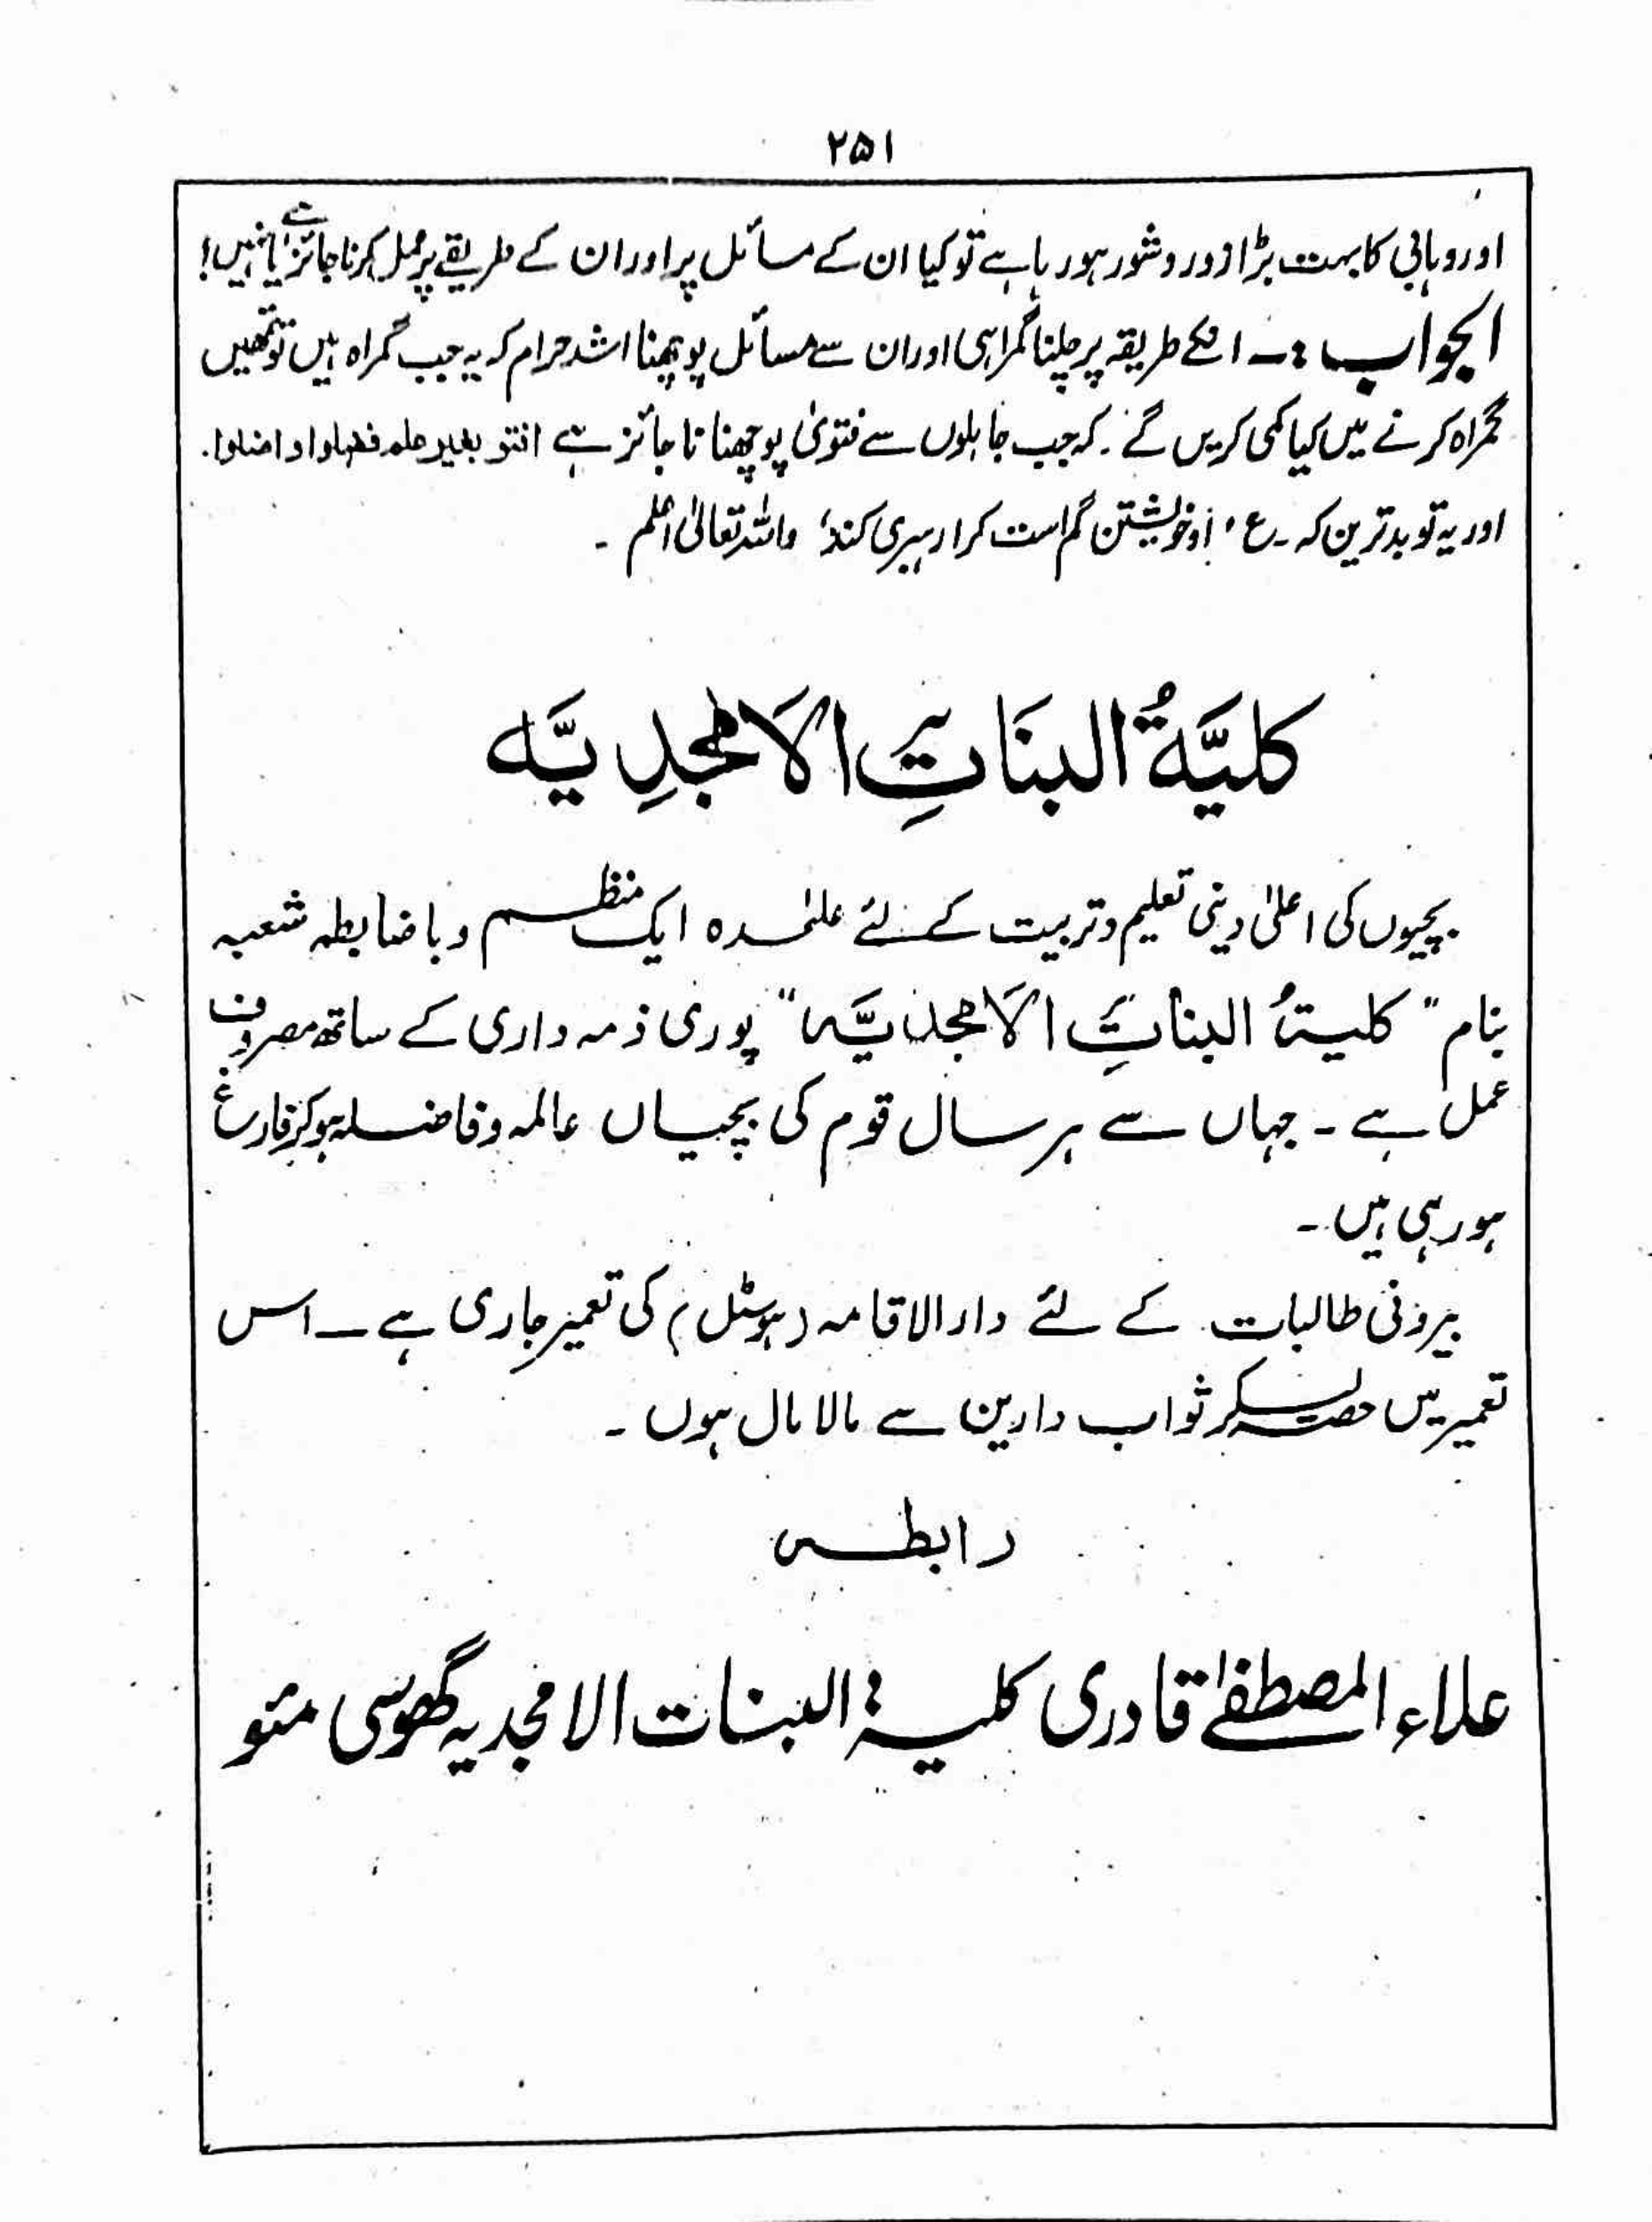 ۲۵۱
اور وہابی کا بہت بڑا زور و شور ہو رہا ہے تو کیا ان کے مسائل پر اور ان کے طریقے پر عمل کرنا جائز ہے یا نہیں!
الجواب :۔ انکے طریقہ پر چلنا گمراہی اور ان سے مسائل پوچھنا اشد حرام کہ یہ جب گمراہ ہیں تو تمھیں
گمراہ کرنے میں کیا کمی کریں گے۔ کہ جب جاہلوں سے فتویٰ پوچھنا ناجائز ہے افتو بغیر علم فضلوا و اضلوا۔
اور یہ تو بدترین کہ ۔ ع ، او خویشتن گم است کرا رہبری کند، واللہ تعالیٰ اعلم ۔
کلیَّۃُ البنَاتِ الاَمجدِیَّہ
بچیوں کی اعلیٰ دینی تعلیم و تربیت کے لئے علٰحدہ ایک منظم و باضابطہ شعبہ
بنام " کلیۃُ البناتِ الاَمجدیَّہ " پوری ذمہ داری کے ساتھ مصروف
عمل ہے ۔ جہاں سے ہر سال قوم کی بچیاں عالمہ و فاضلہ ہو کر فارغ
ہو رہی ہیں ۔
بیرونی طالبات کے لئے دار الاقامہ (ہوسٹل) کی تعمیر جاری ہے ۔ اس
تعمیر میں حصہ لیکر ثواب دارین سے مالا مال ہوں ۔
رابطہ
علاء المصطفےٰ قادری کلیۃ البنات الامجدیہ گھوسی مئو